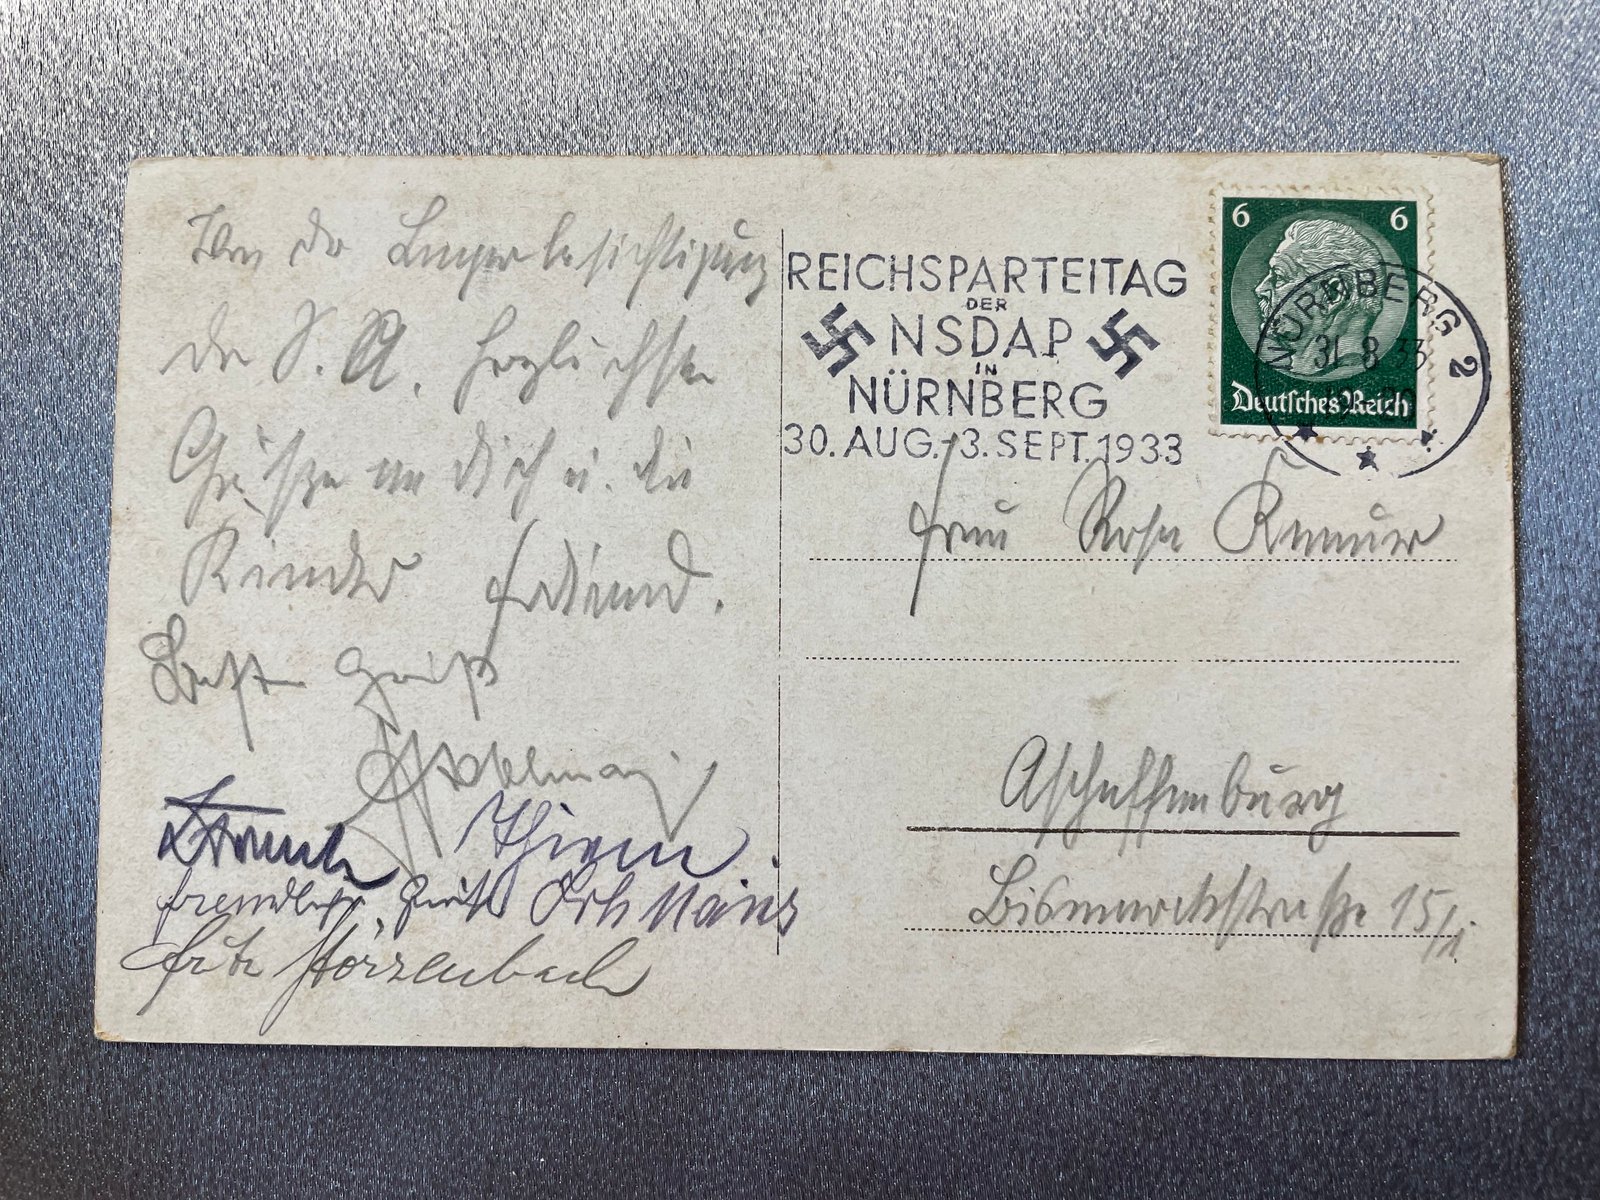 Von der Lagerbesichtigung
der S.A. herzlichste
Grüsse an Dich u. die
Kinder
Beste Grüße
freundlichst Grüßt
Fritz Störzenbach
REICHSPARTEITAG
DER
NSDAP
IN
NÜRNBERG
30. AUG.-3. SEPT. 1933
6 6
Deutsches Reich
NÜRNBERG 2
31 8 33
Frau Rosa Knauer
Aschaffenburg
Bismarckstraße 15/I.